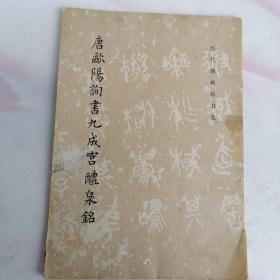 历代碑帖法书选
唐歐陽詢書九成宮醴泉銘